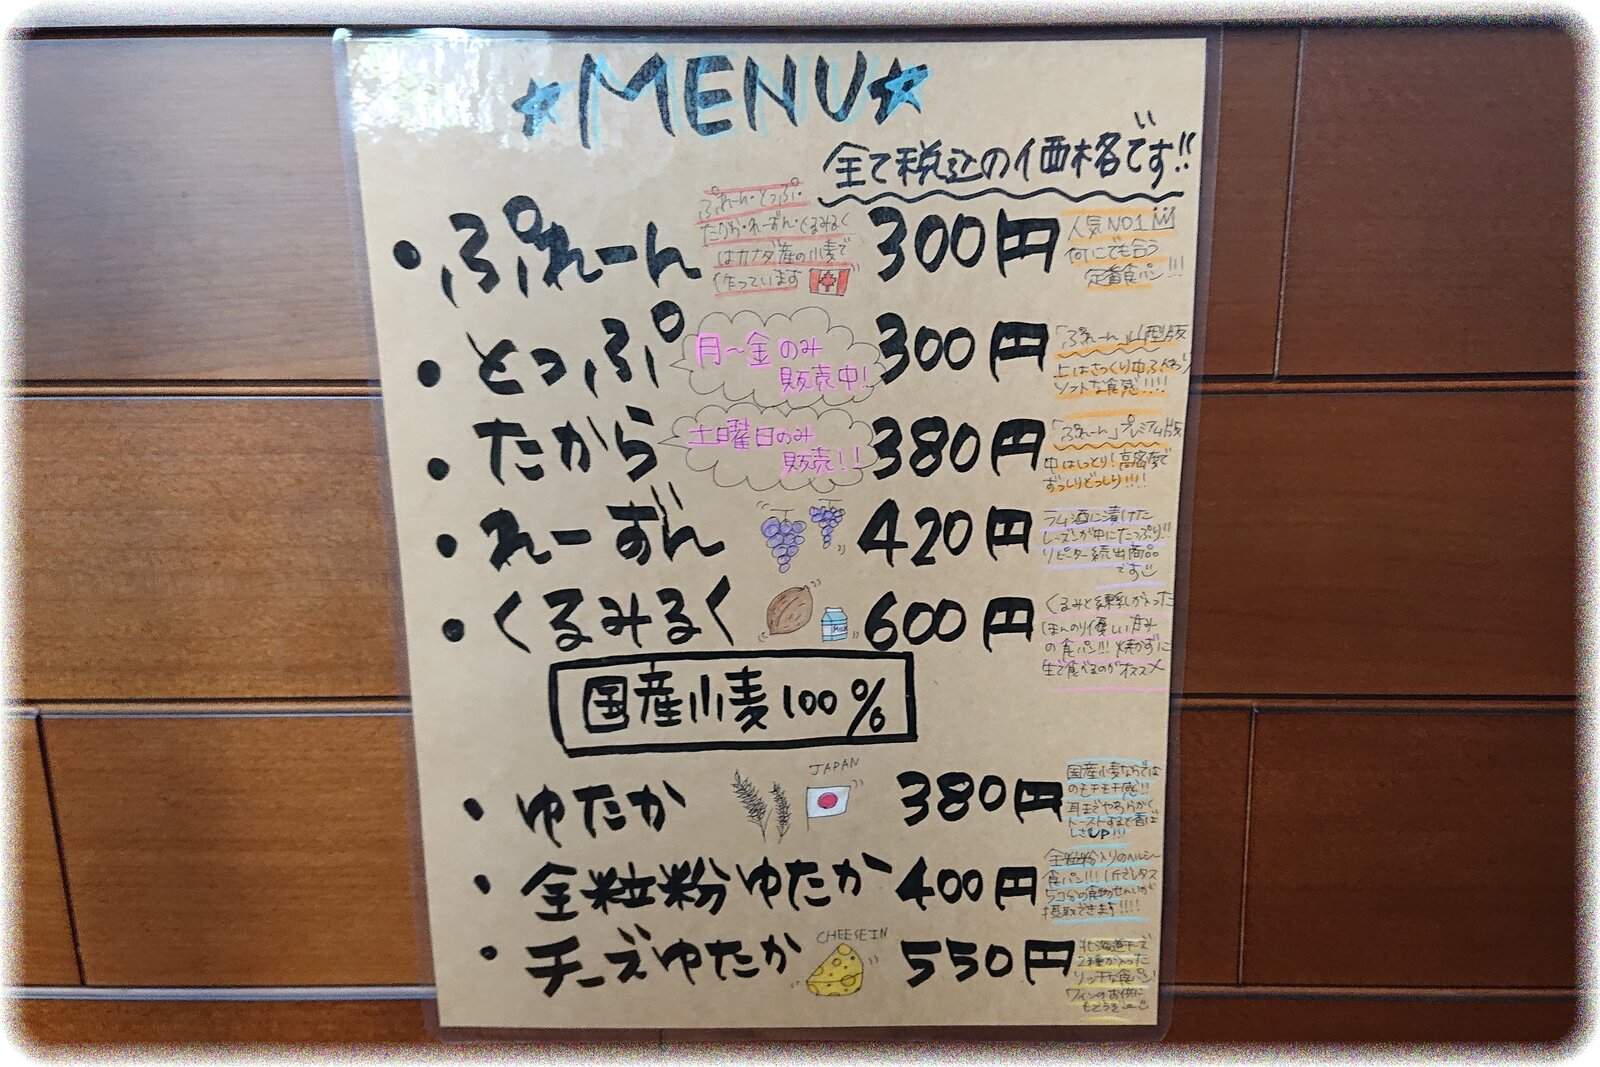 ☆MENU☆
全て税込の価格です!!
・ぷれーん
ぷれーん・とっぷ・
たから・れーずん・くるみるく
はカナダ産の小麦で
作っています
300円
人気NO1
何にでも合う
定番食パン!!!
・とっぷ
月～金のみ
販売中!
300円
「ぷれーん」山型版
上はさっくり中ふんわり
ソフトな食感!!!!
・たから
土曜日のみ
販売!!
380円
「ぷれーん」プレミアム版
中はしっとり!高密度で
ずっしりどっしり!!!!
・れーずん
420円
ラム酒に漬けた
レーズンが中にたっぷり!!
リピーター続出商品
です
・くるみるく
Milk
600円
くるみと練乳が入った
ほんのり優しい甘み
の食パン!!!焼かずに
生で食べるのがオススメ
国産小麦100%
・ゆたか
JAPAN
380円
国産小麦ならでは
のモチモチ感!!
耳までやわらかく
トーストすると香ば
しさUP!!!
・全粒粉ゆたか
400円
全粒粉入りのヘルシー
食パン!!!1斤でレタス
5コ分の食物せんいが
摂取できます!!!!
・チーズゆたか
CHEESE IN
550円
北海道チーズ
2種が入った
リッチな食パン
ワインのお供に
もどうぞ